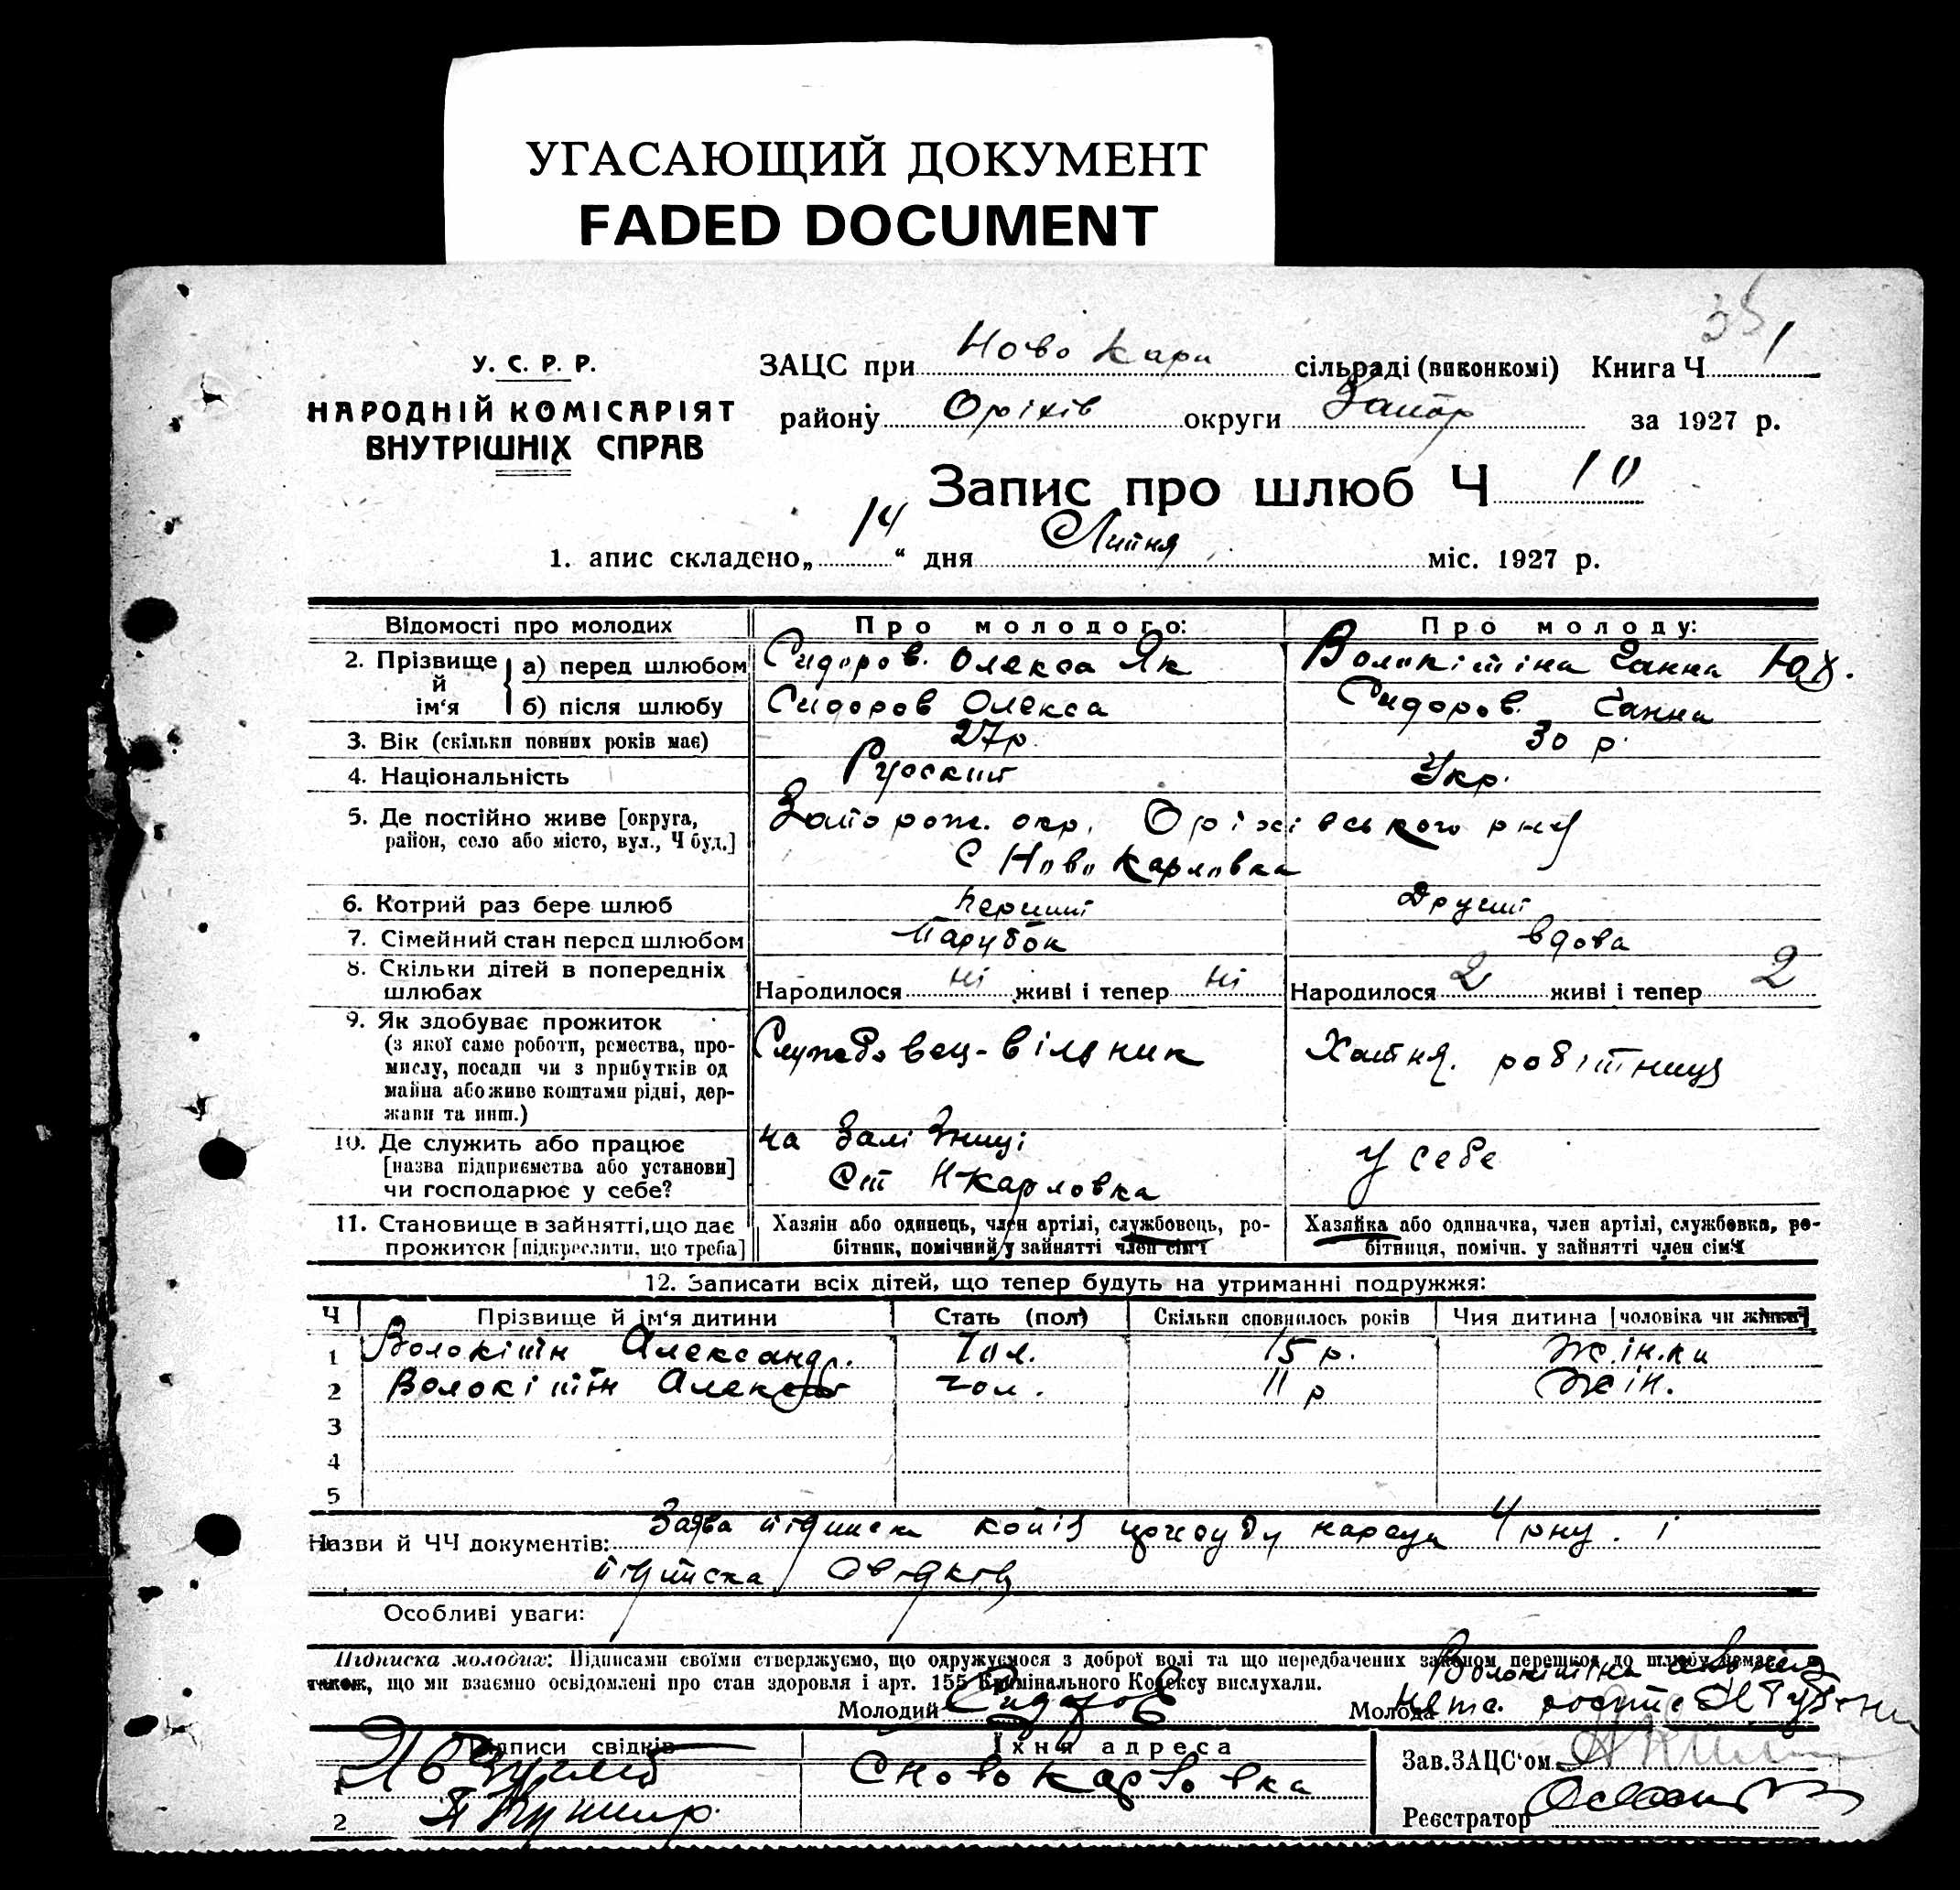 УГАСАЮЩИЙ ДОКУМЕНТ
FADED DOCUMENT
У. С. Р. Р.
НАРОДНІЙ КОМІСАРІЯТ
ВНУТРІШНІХ СПРАВ
ЗАЦС при Ново Кари сільраді (виконкомі) Книга Ч 1
району Оріхів округи Запор за 1927 р.
Запис про шлюб Ч 10
1. апис складено „ 14 “ дня Липня міс. 1927 р.
Відомості про молодих Про молодого: Про молоду:
2. Прізвище й ім‘я а) перед шлюбом Сидоров. Олекса Як Волокітіна Ганна Юх.
б) після шлюбу Сидоров Олекса Сидоров. Ганна
3. Вік (скільки повних років має) 27 р. 30 р.
4. Національність Русский Укр.
5. Де постійно живе [округа, Запорож. окр. Оріхівського р-ну
район, село або місто, вул., Ч буд.] С Ново Карловка
6. Котрий раз бере шлюб перший Другий
7. Сімейний стан перед шлюбом Парубок вдова
8. Скільки дітей в попередніх
шлюбах Народилося ні живі і тепер ні Народилося 2 живі і тепер 2
9. Як здобуває прожиток
(з якої само роботи, ремества, про- Службовец- Хатня. робітниця
мислу, посади чи з прибутків од
майна або живе коштами рідні, дер-
жави та инш.)
10. Де служить або працює на Залізниці
[назва підприємства або установи] у себе
чи господарює у себе? Ст Н-Карловка
11. Становище в зайнятті, що дає Хазяін або одинець, член артілі, службовець, ро- Хазяйка або одиначка, член артілі, службовка, ро-
прожиток [підкреслити, що треба] бітник, помічний у зайнятті член сім‘ї бітниця, помічн. у зайнятті член сім‘ї
12. Записати всіх дітей, що тепер будуть на утриманні подружжя:
Ч Прізвище й ім‘я дитини Стать (пол) Скільки сповнилось років Чия дитина [чоловіка чи жінки]
1 Волокітін Александр. Чол. 15 р. Жінки
2 Волокітін Алекс чол. 11 р Жін.
3
4
5
Назви й ЧЧ документів: Заява підписка копія нарсуда 4 р-ну. і
підписка свідків
Особливі уваги:
Підписка молодих: Підписами своїми стверджуємо, що одружуємося з доброї волі та що передбачених законом перешкод до шлюбу немає, а
також, що ми взаємно освідомлені про стан здоровля і арт. 155 Кримінального Кодексу вислухали.
Волокітіна
Молодий Сидоров Молода
Підписи свідків Їхня адреса
1 С Ново Карловка
2 Кушнір
Зав. ЗАЦС‘ом
Реєстратор